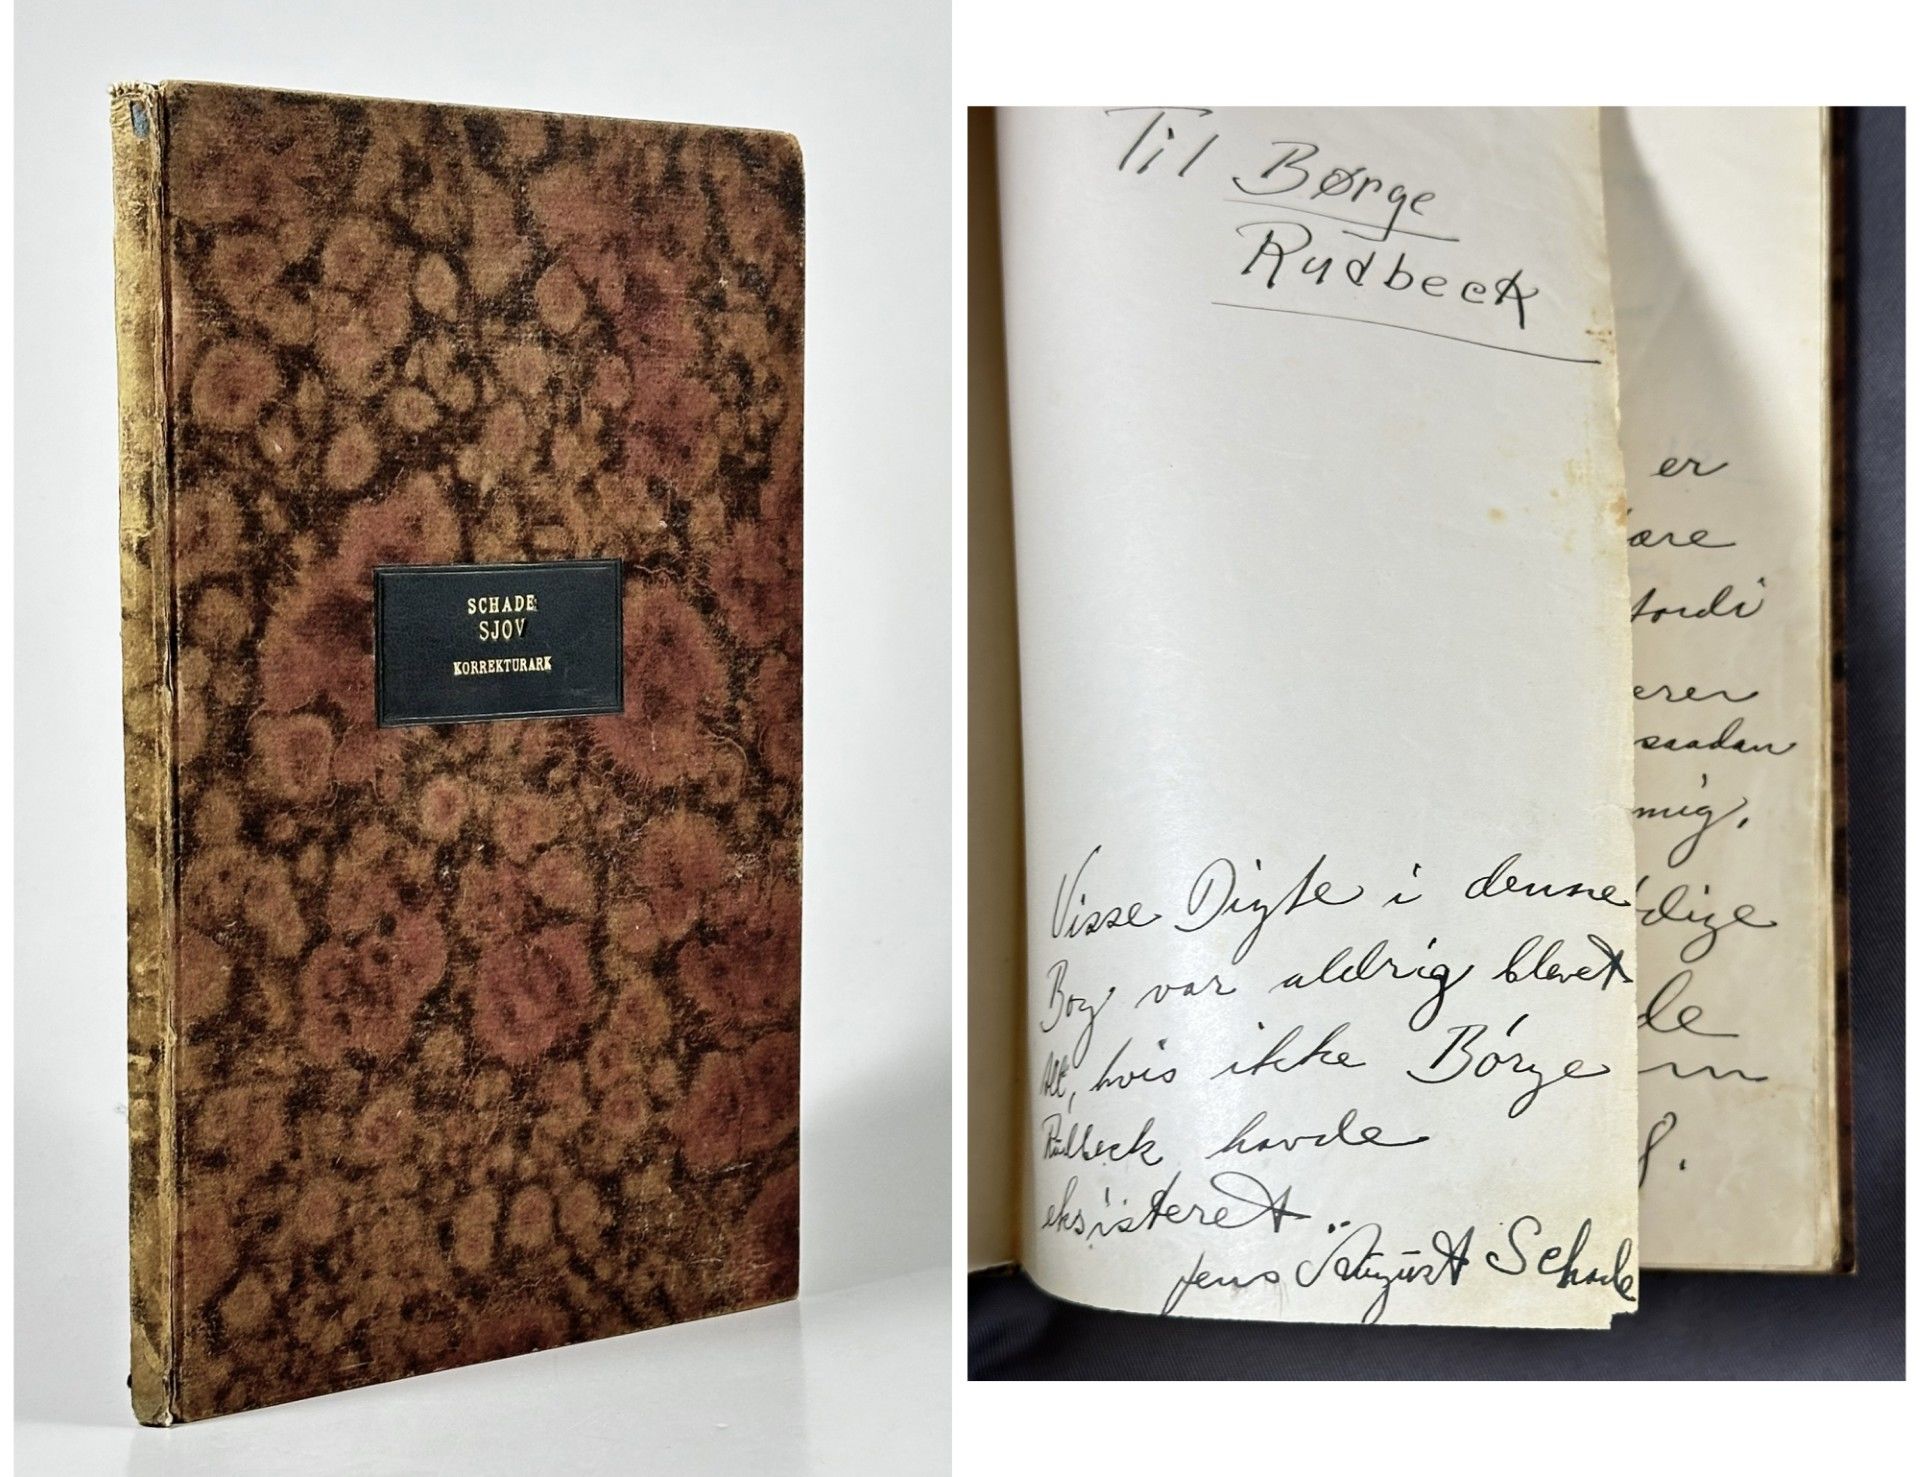 SCHADE
SJOV
KORREKTURARK
Til Børge
Rudbeck
Visse Digte i denne
Bog var aldrig blevet
til, hvis ikke Börge
Rudbeck havde
eksisteret.
Jens August Schade
er
fordi
saadan
mig.
de